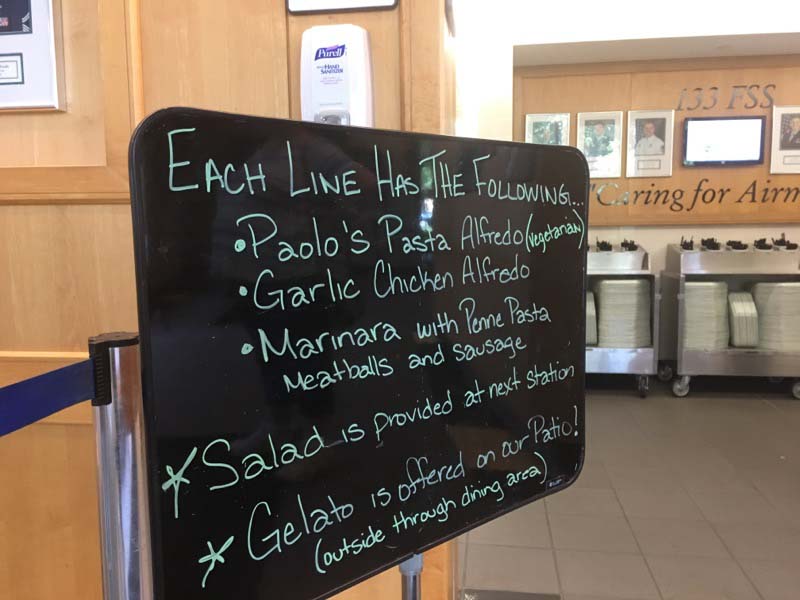 Purell
HAND
SANITIZER
133 FSS
"Caring for Airm
EACH LINE HAS THE FOLLOWING...
• Paolo's Pasta Alfredo (vegetarian)
• Garlic Chicken Alfredo
• Marinara with Penne Pasta
Meatballs and Sausage
* Salad is provided at next station
* Gelato is offered on our Patio!
(outside through dining area)